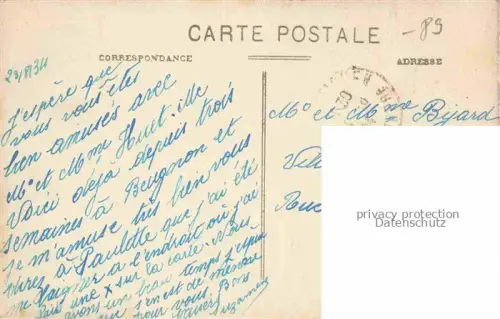 CARTE POSTALE
-89
CORRESPONDANCE
ADRESSE
29/8/34
J'espère que
vous vous êtes
bien amusés avec
Mr et Mme Huet. Me
voici déjà depuis trois
semaines à Beugnon et
je m'amuse très bien vous
direz à Paulette que j'ai été
me baigner à l'endroit où j'ai
fait une x sur la carte. Nous
avons un beau temps j'espère
qu'il en est de même
pour vous. Bons
baisers
Suzanne
Mr et Mme Bijard
Rue
privacy protection
www.oldthing.de